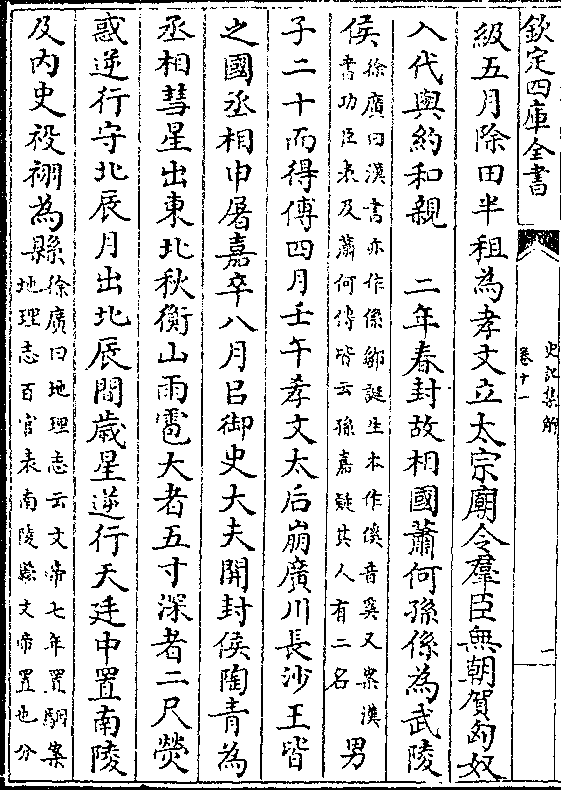 欽定四庫全書
史記集解
卷十一
二
級五月除田半租為孝文立太宗廟令羣臣無朝賀匈奴
入代與約和親　二年春封故相國蕭何孫係為武陵
侯徐廣曰漢書亦作係鄒誕生本作傒音奚又案漢
書功臣表及蕭何傳皆云孫嘉疑其人有二名男
子二十而得傅四月壬午孝文太后崩廣川長沙王皆
之國丞相申屠嘉卒八月以御史大夫開封侯陶青為
丞相彗星出東北秋衡山雨雹大者五寸深者二尺熒
惑逆行守北辰月出北辰間歲星逆行天廷中置南陵
及内史祋祤為縣徐廣曰地理志云文帝七年置駰案
地理志百官表南陵縣文帝置也分